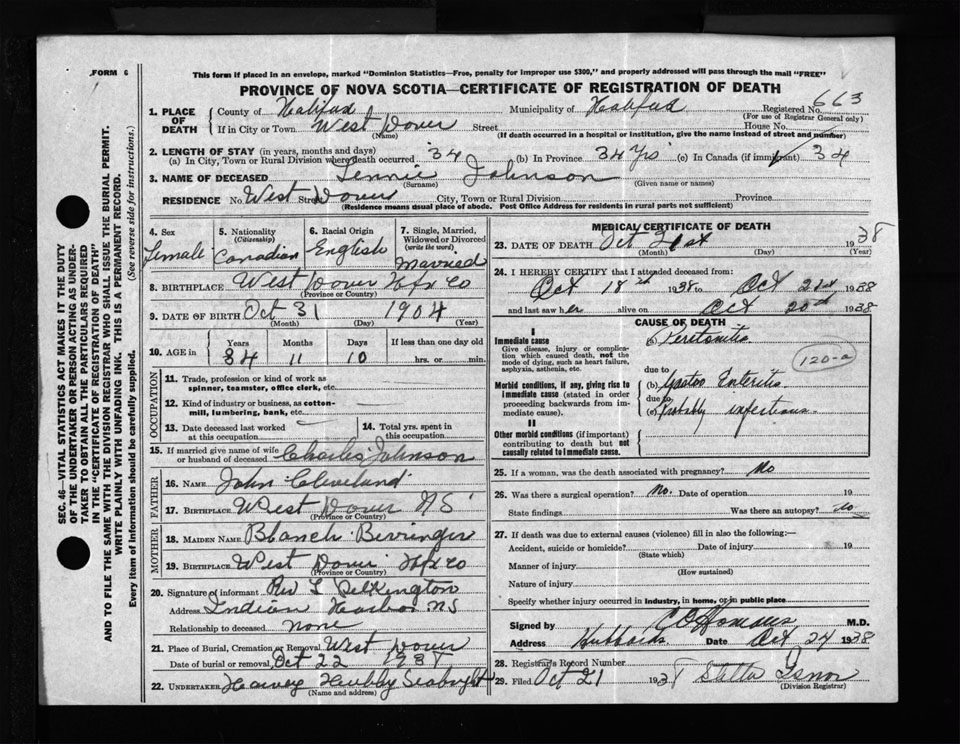 FORM 6
This form if placed in an envelope, marked "Dominion Statistics—Free, penalty for improper use $300," and properly addressed will pass through the mail "FREE"
PROVINCE OF NOVA SCOTIA—CERTIFICATE OF REGISTRATION OF DEATH
SEC. 46—VITAL STATISTICS ACT MAKES IT THE DUTY
OF THE UNDERTAKER OR PERSON ACTING AS UNDER-
TAKER TO OBTAIN ALL THE PARTICULARS REQUIRED
IN THE "CERTIFICATE OF REGISTRATION OF DEATH"
AND TO FILE THE SAME WITH THE DIVISION REGISTRAR WHO SHALL ISSUE THE BURIAL PERMIT.
WRITE PLAINLY WITH UNFADING INK. THIS IS A PERMANENT RECORD.
Every item of Information should be carefully supplied. (See reverse side for instructions.)
1. PLACE OF DEATH
County of Halifax Municipality of Halifax Registered No. 663
(For use of Registrar General only)
If in City or Town West Dover Street House No.
(Name) (If death occurred in a hospital or institution, give the name instead of street and number)
2. LENGTH OF STAY (in years, months and days)
(a) In City, Town or Rural Division where death occurred 34 (b) In Province 34 Yrs (c) In Canada (if immigrant) 34
3. NAME OF DECEASED Johnson
(Surname) (Given name or names)
RESIDENCE No. West Dover Street City, Town or Rural Division Province
(Residence means usual place of abode. Post Office Address for residents in rural parts not sufficient)
4. Sex
Female
5. Nationality
(Citizenship)
Canadian
6. Racial Origin
English
7. Single, Married,
Widowed or Divorced
(write the word)
Married
8. BIRTHPLACE West Dover Hfx Co
(Province or Country)
9. DATE OF BIRTH Oct 31 1904
(Month) (Day) (Year)
10. AGE in
Years Months Days If less than one day old
34 11 10 hrs. or min.
OCCUPATION
11. Trade, profession or kind of work as
spinner, teamster, office clerk, etc.
12. Kind of industry or business, as cotton-
mill, lumbering, bank, etc.
13. Date deceased last worked
at this occupation
14. Total yrs. spent in
this occupation
15. If married give name of wife
or husband of deceased Charles Johnson
FATHER
16. NAME John Cleveland
17. BIRTHPLACE West Dover NS
(Province or Country)
MOTHER
18. MAIDEN NAME Blanch
19. BIRTHPLACE West Dover Hfx Co
(Province or Country)
20. Signature of informant Rev
Address Indian Harbor NS
Relationship to deceased none
21. Place of Burial, Cremation or Removal West Dover
Date of burial or removal Oct 22 1938
22. UNDERTAKER Harvey Hubley Seabright
(Name and address)
MEDICAL CERTIFICATE OF DEATH
23. DATE OF DEATH Oct 21st 1938
(Month) (Day) (Year)
24. I HEREBY CERTIFY that I attended deceased from:
Oct 18th 1938 to Oct 1938
and last saw her alive on Oct 1938
CAUSE OF DEATH
I
Immediate cause
Give disease, injury or complica-
tion which caused death, not the
mode of dying, such as heart failure,
asphyxia, asthenia, etc.
Morbid conditions, if any, giving rise to
immediate cause (stated in order
proceeding backwards from im-
mediate cause).
II
Other morbid conditions (if important)
contributing to death but not
causally related to immediate cause.
Peritonitis
120-a
due to
(b) Gastro Enteritis
due to
Probably infectious
25. If a woman, was the death associated with pregnancy? No
26. Was there a surgical operation? No. Date of operation 19
State findings Was there an autopsy? no
27. If death was due to external causes (violence) fill in also the following:—
Accident, suicide or homicide? Date of injury 19
(State which)
Manner of injury
(How sustained)
Nature of injury
Specify whether injury occurred in industry, in home, or in public place
Signed by M.D.
Address Hubbards Date Oct 24 1938
28. Registrar's Record Number
29. Filed Oct 21 1938 Stella Isnor
(Division Registrar)